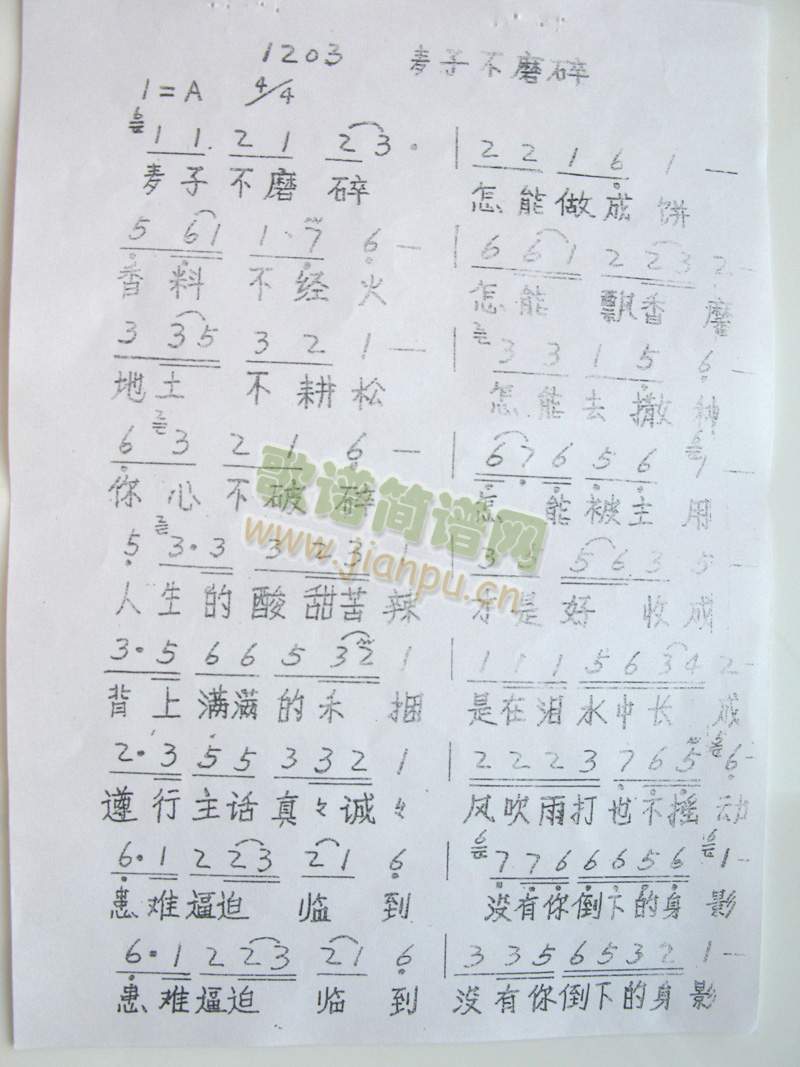 1203 麦子不磨碎
1=A 4/4
6 1 1. 2 1 2 3 · | 2 2 1 6 1 —
麦子不磨碎 怎能做成饼
5 6 1 1 · 7 6 — | 6 6 1 2 2 3 2 —
香料不经火 怎能飘香
3 3 5 3 2 1 — | 2 3 3 1 5 6 —
地土不耕松 怎能去撒种
6 2 3 2 1 6 — | 6 7 6 5 6 6 1 —
你心不破碎 怎能被主用
歌谱简谱网
www.jianpu.cn
5 2 3 · 3 3 2 3 1 | 3 5 5 6 3 5 —
人生的酸甜苦辣 才是好收成
3 · 5 6 6 5 3 2 1 | 1 1 1 5 6 3 4 2 —
背上满满的禾捆 是在泪水中长成
2 · 3 5 5 3 3 2 1 | 2 2 2 3 7 6 5 6 —
遵行主话真々诚々 风吹雨打也不摇动
6 · 1 2 2 3 2 1 6 | 6 7 7 6 6 6 5 6 6 1 —
患难逼迫临到 没有你倒下的身影
6 · 1 2 2 3 2 1 6 | 3 3 5 6 5 3 2 1 —
患难逼迫临到 没有你倒下的身影